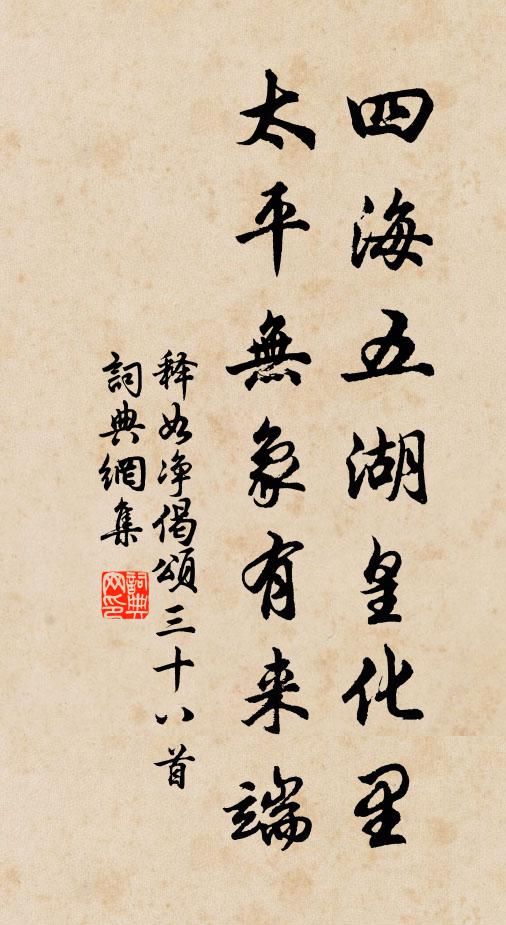 四海五湖皇化里
太平無象有来端
释如净偈頌三十八首
詞典網集
詞典网印